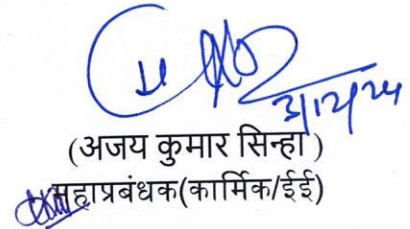 3/12/24
(अजय कुमार सिन्हा)
महाप्रबंधक(कार्मिक/ईई)